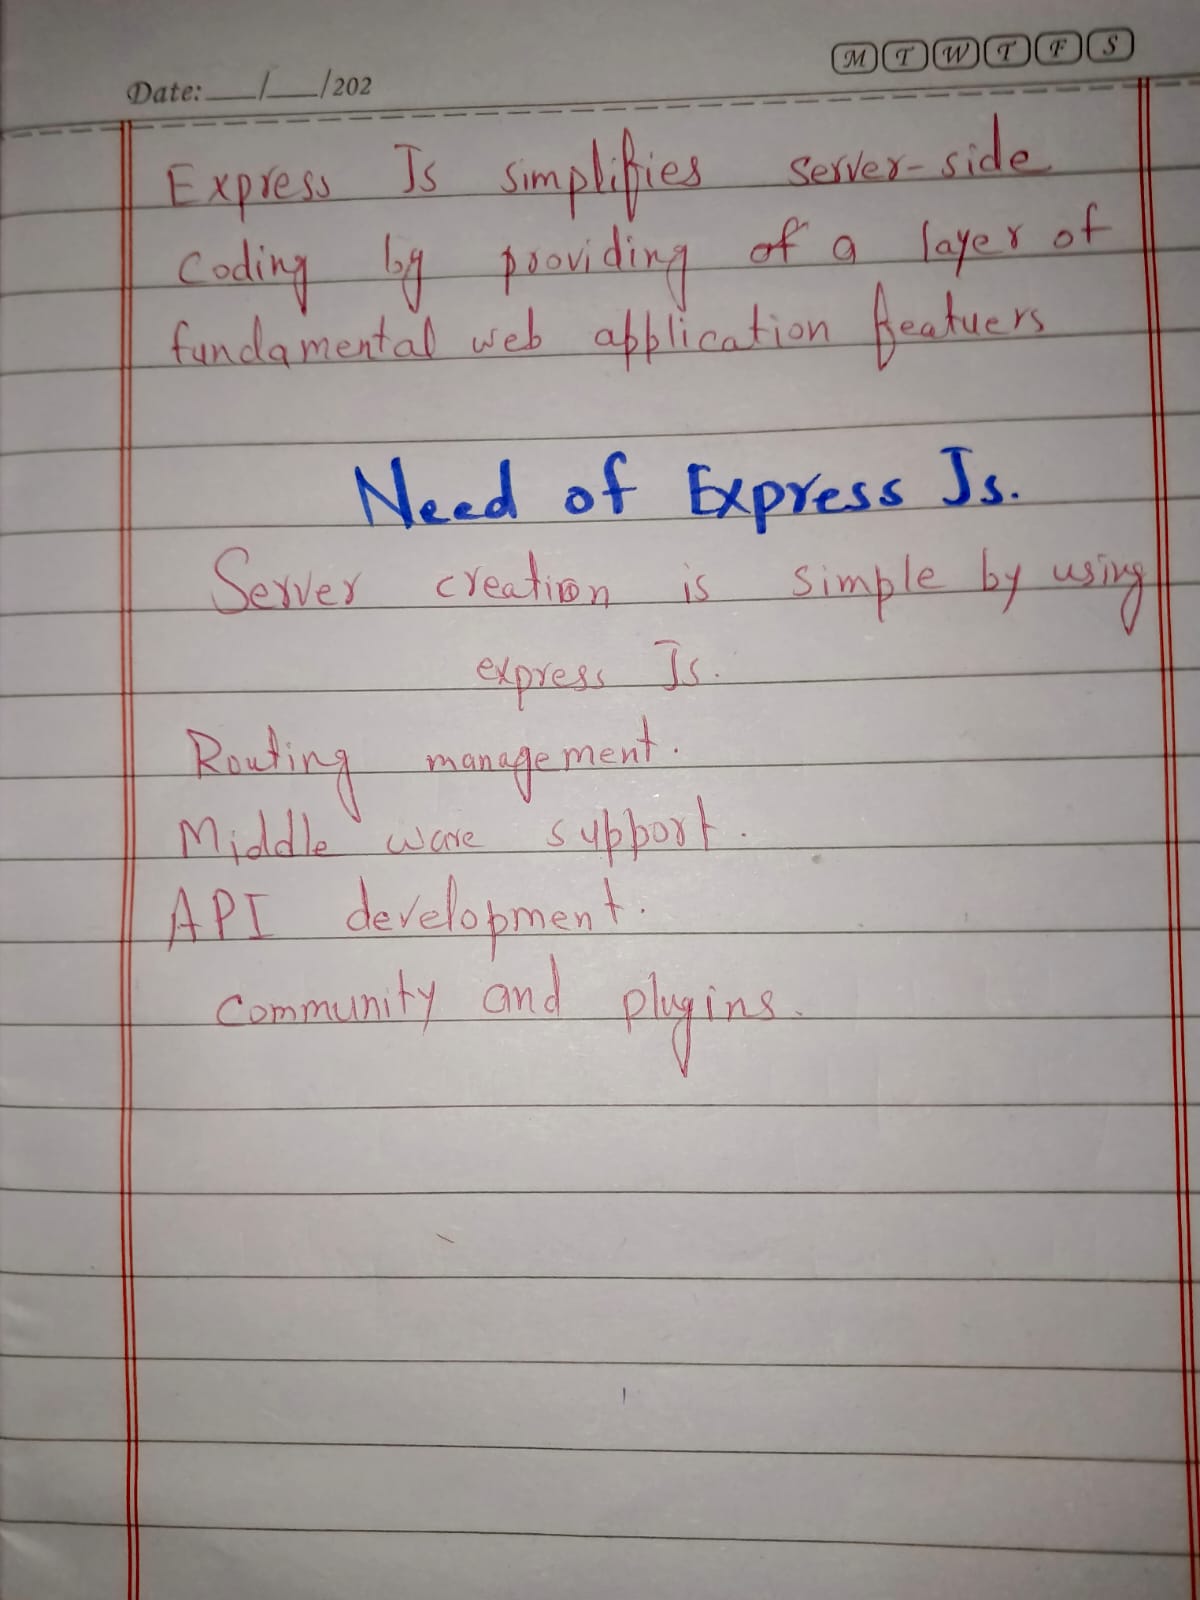 M T W T F S
Date: __/__/202
Express Js simplifies server-side
coding by providing of a layer of
fundamental web application featuers
Need of Express Js.
Server creation is simple by using
express Js.
Routing management.
Middle ware support.
API development.
Community and plugins.